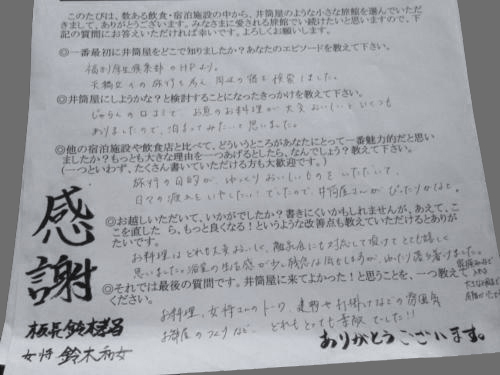 このたびは、数ある飲食・宿泊施設の中から、井筒屋のような小さな旅館を選んでいただ
きまして、ありがとうございます。みなさまに愛される旅館でい続けたいと思いますので、下
記の質問にお答えいただければ幸いです。よろしくお願いします。
◎一番最初に井筒屋をどこで知りましたか?あなたのエピソードを教えて下さい。
福利厚生倶楽部のHPより。
天橋立への旅行を考え 周辺の宿を検索しました。
◎井筒屋にしようかな?と検討することになったきっかけを教えて下さい。
じゃらんの口コミで、お魚のお料理が大変おいしいといくつも
ありましたので、泊まってみたいと思いました。
◎他の宿泊施設や飲食店と比べて、どういうところがあなたにとって一番魅力的だと思い
ましたか?もっとも大きな理由を一つあげるとしたら、なんでしょう?教えて下さい。
(一つといわず、たくさん書いていただける方も大歓迎です。)
旅行の目的が、ゆっくりおいしいものをいただいて、
日々の疲れをいやしたい!でしたので、井筒屋さんがぴったりかなと。
◎お越しいただいて、いかがでしたか?書きにくいかもしれませんが、あえて、こ
こを直したら、もっと良くなる!というような改善点も教えていただけるとありが
たいです。
お料理はどれも大変おいしく、離乳食にも対応して頂けてとても嬉しく
思いました。浴室の生活感が少し残念な気もしますが、ゆったり落ち着けました。
◎それでは最後の質問です。井筒屋に来てよかった!と思うことを、一つ教えて
ください。
お料理、女将さんのトーク、建物や打掛けなどの雰囲気
お部屋のつくりなど、どれもとっても素敵でした!!
ありがとうございます。
感謝
板長 鈴木
女将 鈴木和女